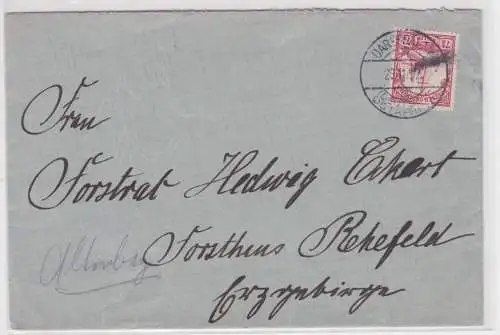 Frau
Forstrat Hedwig Eckart
Forsthaus Rehefeld
Altenberg
Erzgebirge